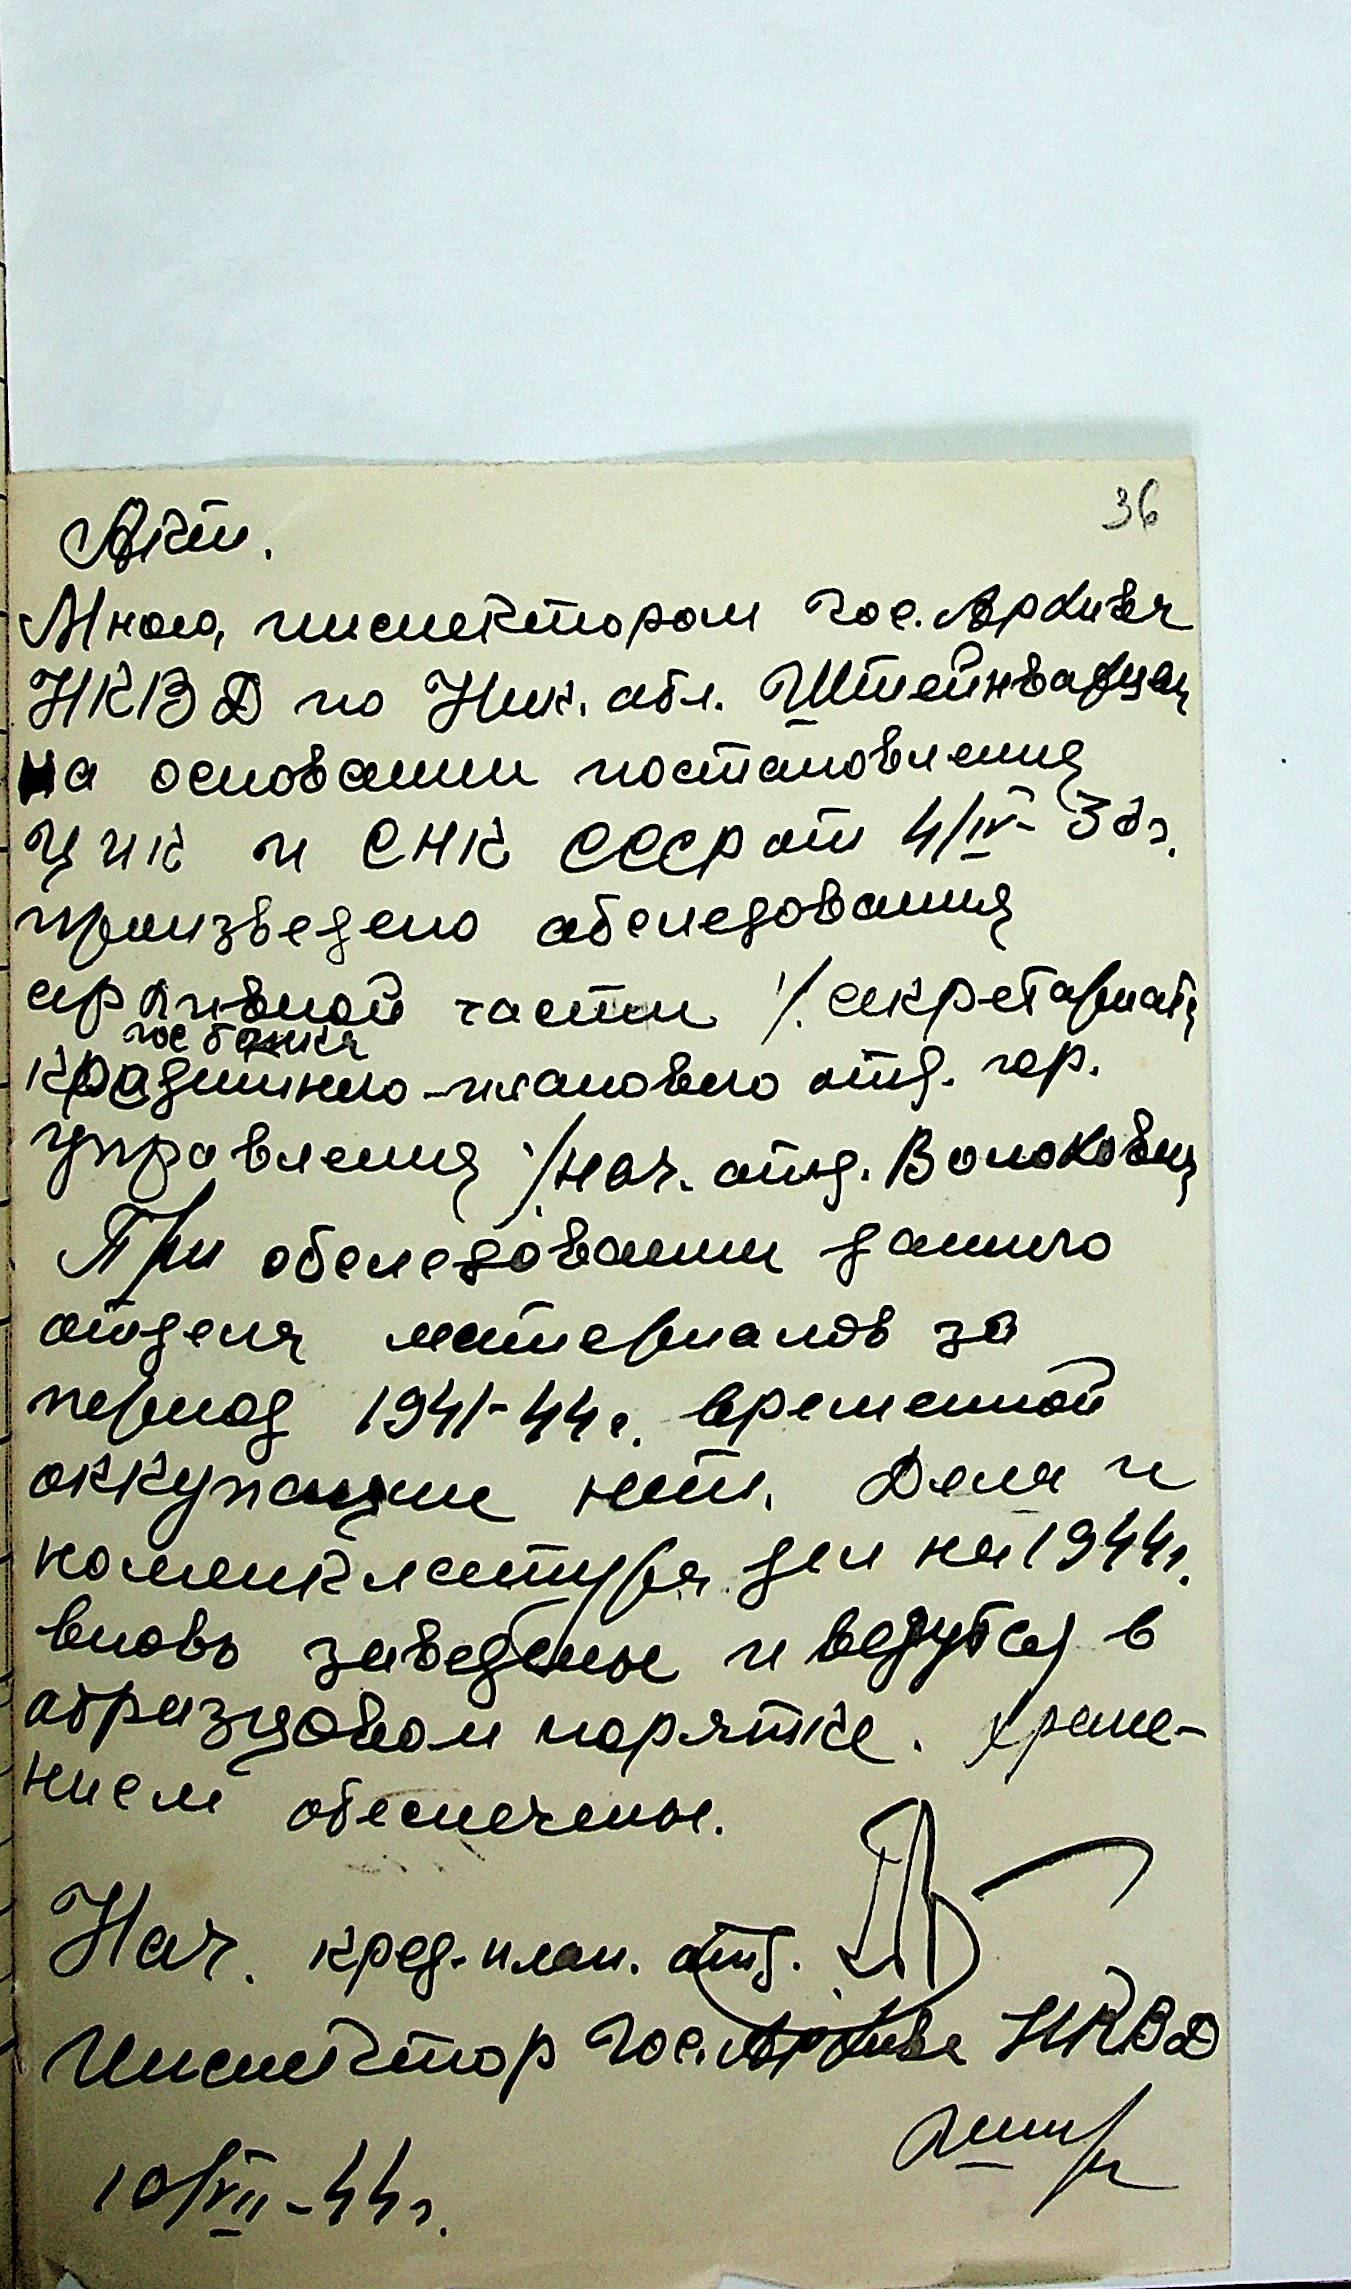 36
Акт.
Мною, инспектором Гос. Архива
НКВД по Ник. обл. Штейнварцем
на основании постановления
ЦИК и СНК СССР от 4/IV-36г.
произведено обследования
архивной части /. секретариата
гос банка
кредитного-планового отд. гор.
управления /. нач. отд.
При обследовании данного
отдела материалов за
период 1941-44г. временной
оккупации нет. Дела и
номенклатура дел на 1944г.
вновь заведены и ведутся в
образцовом порятке. Хране-
нием обеспечены.
Нач. кред-план. отд.
Инспектор Гос. Архива НКВД
10/VII-44г.